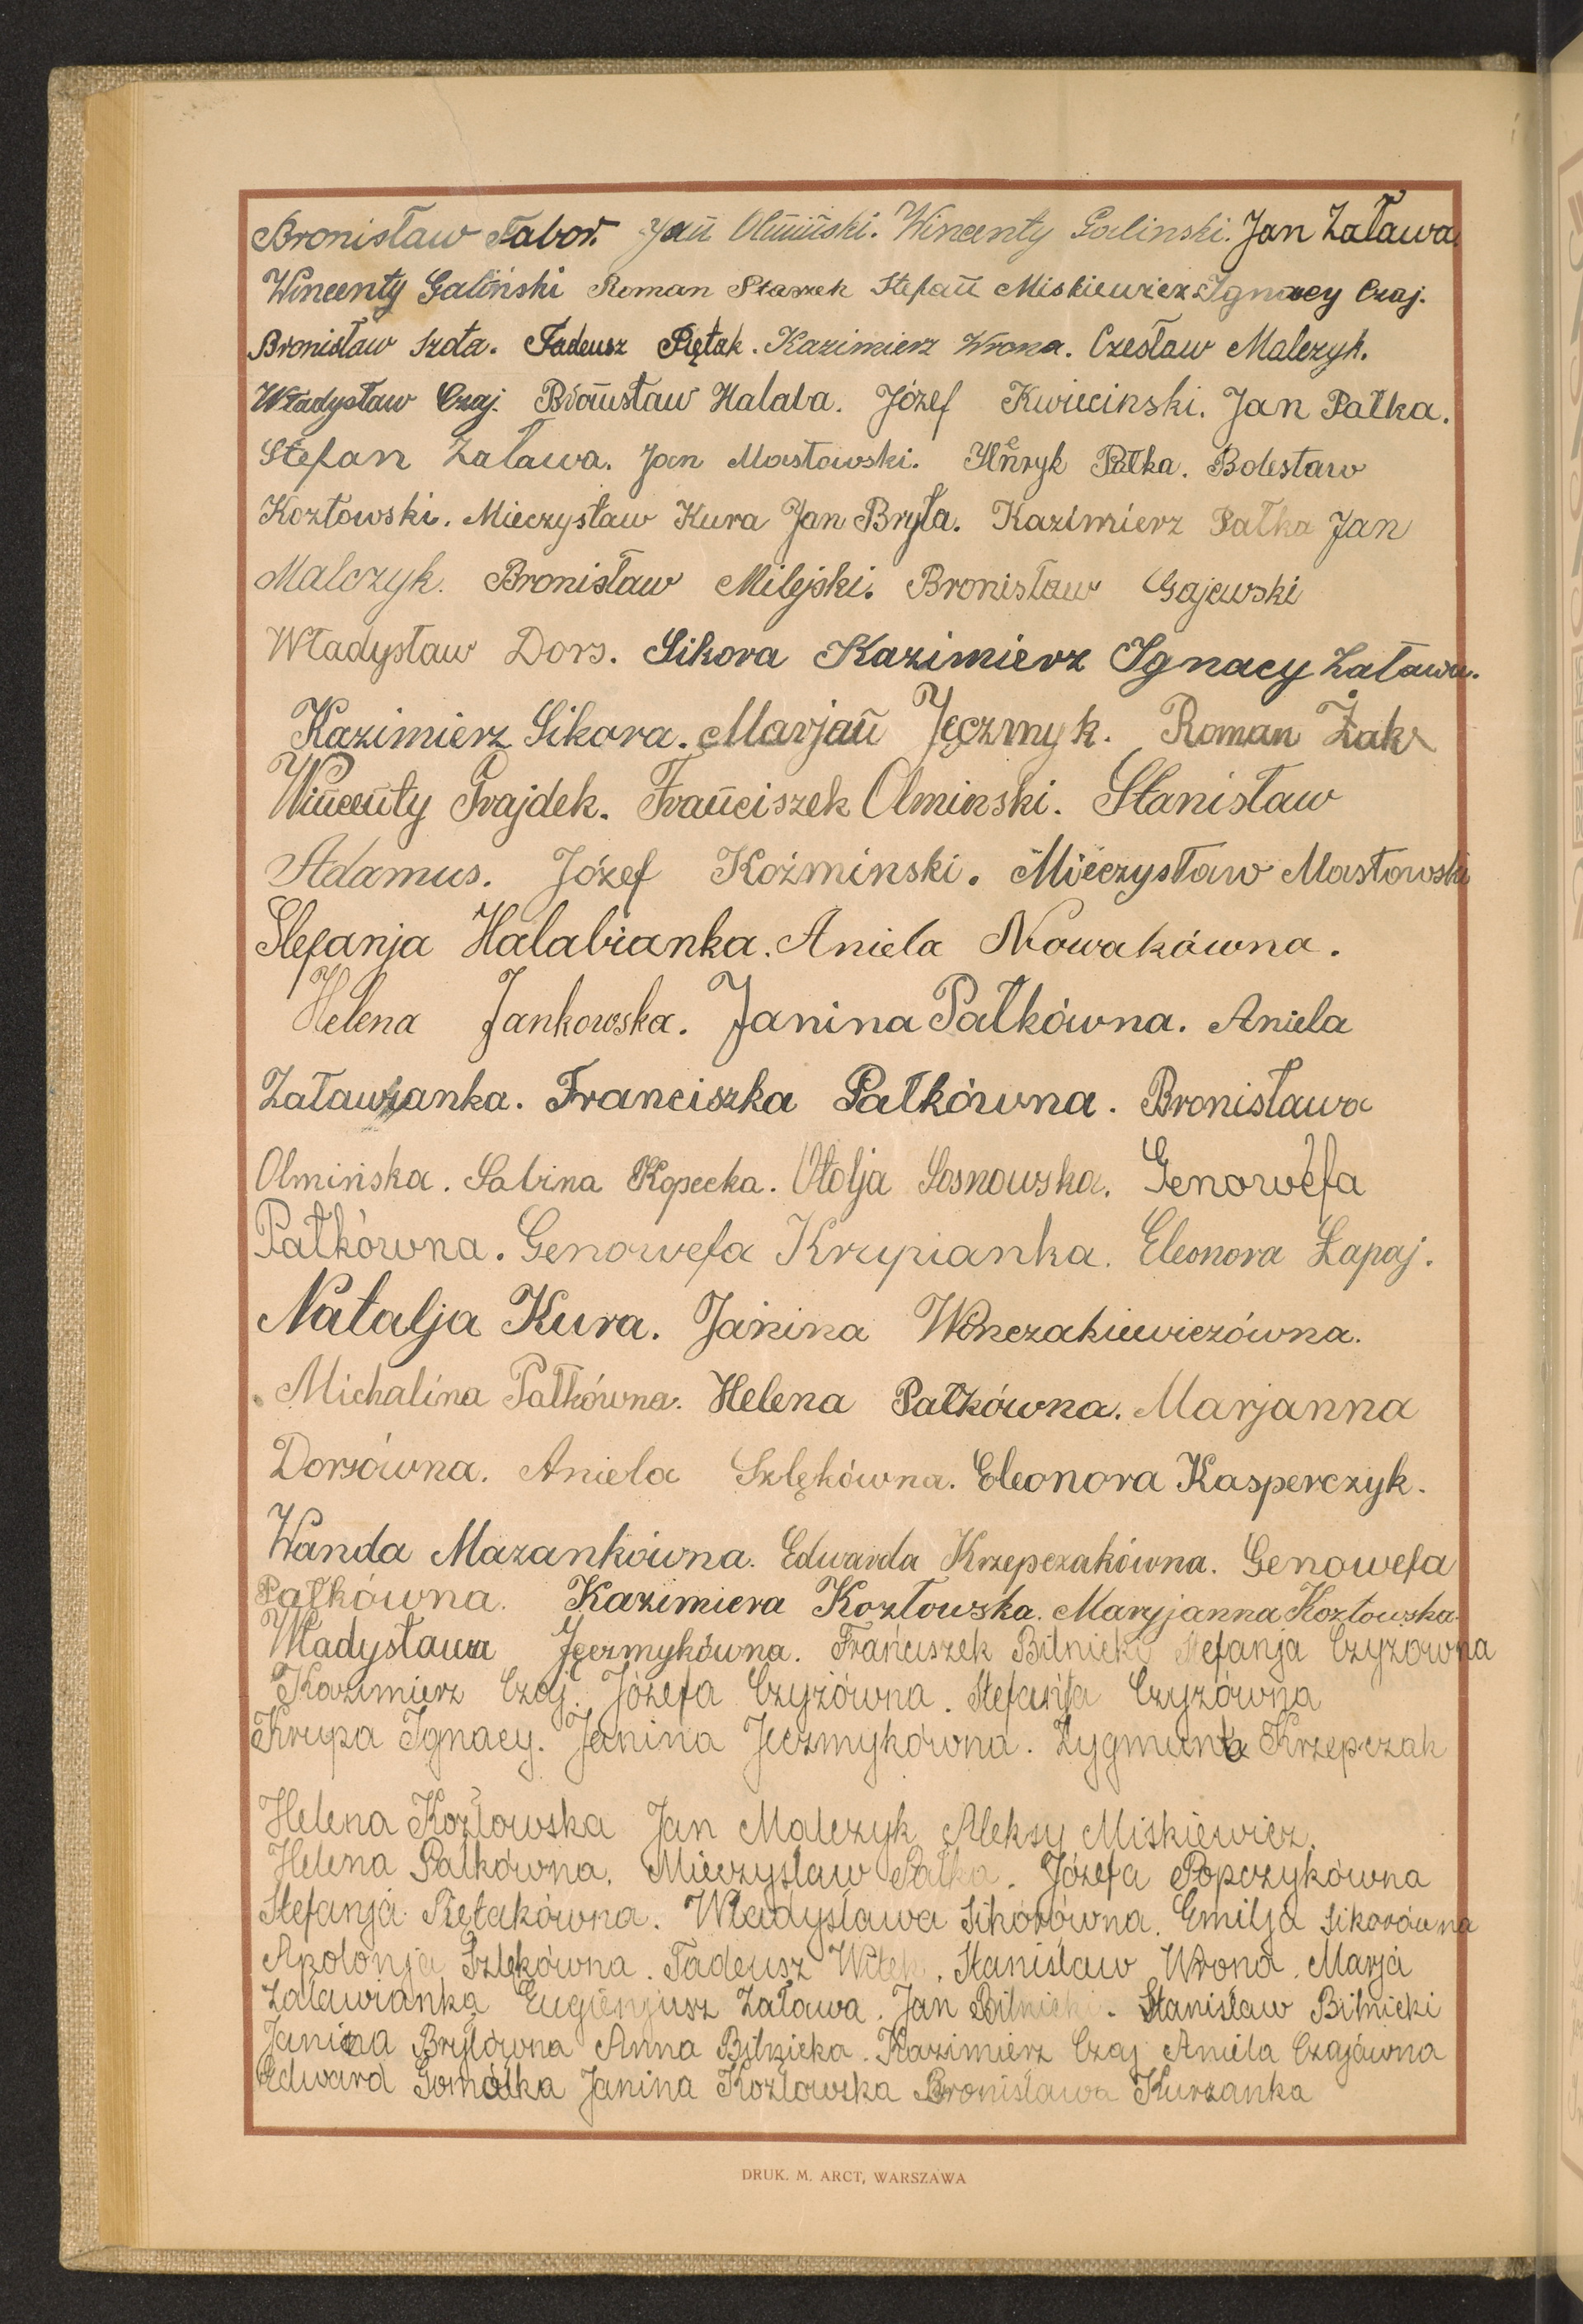 Bronisław Tabor. Jan Olmiński. Wincenty Galinski. Jan Zaława.
Wincenty Galiński Roman Staszek Stefan Miskiewicz Ignacy Czaj.
Bronisław Szota. Tadeusz Piętak. Kazimierz Wrona. Czesław Malczyk.
Władysław Czaj. Bronisław Halaba. Józef Kwiecinski. Jan Pałka.
Stefan Zaława. Jan Masłowski. Henryk Pałka. Bolesław
Kozłowski. Mieczysław Kura Jan Bryła. Kazimierz Pałka Jan
Malczyk. Bronisław Milejski. Bronisław Gajewski
Władysław Dors. Sikora Kazimierz Ignacy Zaława.
Kazimierz Sikora. Marjan Jęczmyk. Roman Żak
Wincenty Frajdek. Franciszek Olminski. Stanisław
Adamus. Józef Koźminski. Mieczysław Masłowski
Stefanja Halabianka. Aniela Nowakówna.
Helena Jankowska. Janina Pałkówna. Aniela
Załawianka. Franciszka Pałkówna. Bronisława
Olmińska. Sabina Kopecka. Otolja Sosnowska. Genowefa
Pałkówna. Genowefa Krupianka. Eleonora Łapaj.
Natalja Kura. Janina Wonczakiewiczówna.
Michalina Pałkówna. Helena Pałkówna. Marjanna
Dorsówna. Aniela Szlękówna. Eleonora Kasperczyk.
Wanda Mazankówna. Edwarda Krzepczakówna. Genowefa
Pałkówna. Kazimiera Kozłowska. Maryjanna Kozłowska.
Władysława Jęczmykówna. Franciszek Bilnicki Stefanja Czyżówna
Kazimierz Czaj. Józefa Czyżówna. Stefanja Czyżówna
Krupa Ignacy. Janina Jeczmykówna. Zygmunt Krzepczak
Helena Kozłowska Jan Malczyk Aleksy Miskiewicz.
Helena Pałkówna. Mieczysław Pałka. Józefa Popczykówna
Stefanja Piętakówna. Władysława Sikorówna. Emilja Sikorówna
Apolonja Szlękówna. Tadeusz Witek. Stanisław Wrona. Marja
Załawianka Eugienjusz Zaława. Jan Bilnicki. Stanisław Bilnicki
Janina Brylówna Anna Bilnicka. Kazimierz Czaj Aniela Czajówna
Edward Gomółka Janina Kozłowska Bronisława Kurzanka
DRUK. M. ARCT, WARSZAWA